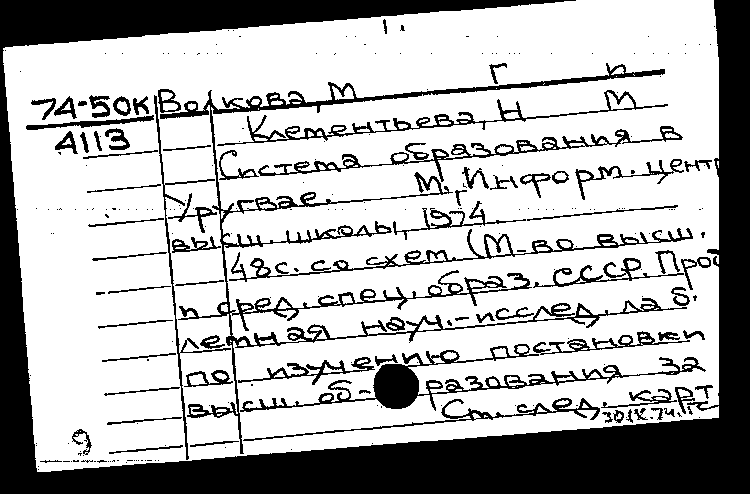 1.
74-50К Волкова, М Г п
4113 Клементьева, Н М
Система образования в
Уругвае. М., Информ. центр
высш. школы, 1974.
48с. со схем. (М-во высш.
и сред. спец. образ. СССР. Проб
лемная науч.-исслед. лаб.
по изучению постановки
высш. об-разования за
Ст. след. карт.
9